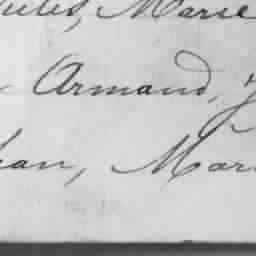 Jules, Marie
Armand, J
ean, Mari